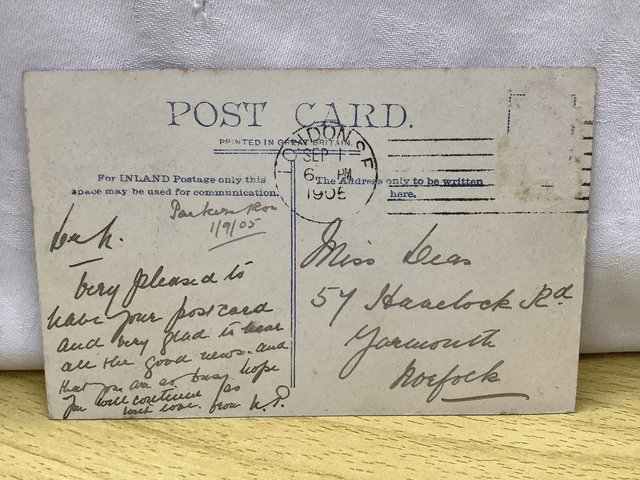 POST CARD.
PRINTED IN GREAT BRITAIN.
LONDON S.E
SEP 1
6 PM
1905
For INLAND Postage only this
space may be used for communication.
The Address only to be written
here.
1/9/05
Very pleased to
have your postcard
and very glad to hear
all the good news. and
that you are so busy hope
you will continue so
with love. from
Miss Deas
57 Havelock Rd
Yarmouth
Norfolk